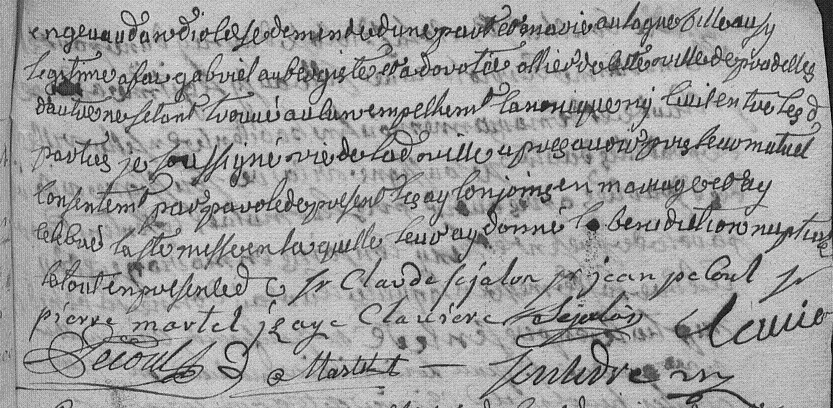 en gevaudan diolese de mende d'une part et marie anloque fille aussy
legitime a feu gabriel aubergiste et a dorotée ollier de cette ville de pradelles
d'autre ne setant trouvé aucun empechemt canonique ny civil entre les d
parties je soussigné vic de lad ville apres avoir pris leur mutuel
consentemt par parole de present les ay conjoins en mariage et ay
celebré la ste messe en laquelle leur ay donné la benediction nuptiale
le tout en presence de sr Claude sejalon sr jean pecoul sr
pierre martel izaye Claviere Sejalon Clavie
Pecoul Martel